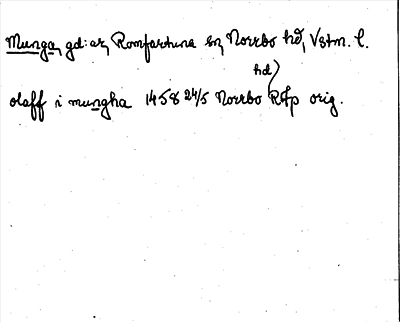 Munga, gd:ar, Romfartuna sn, Norrbo hd, Vstm. l.
hd
olaff i mungha 1458 24/5 Norrbo RAp orig.